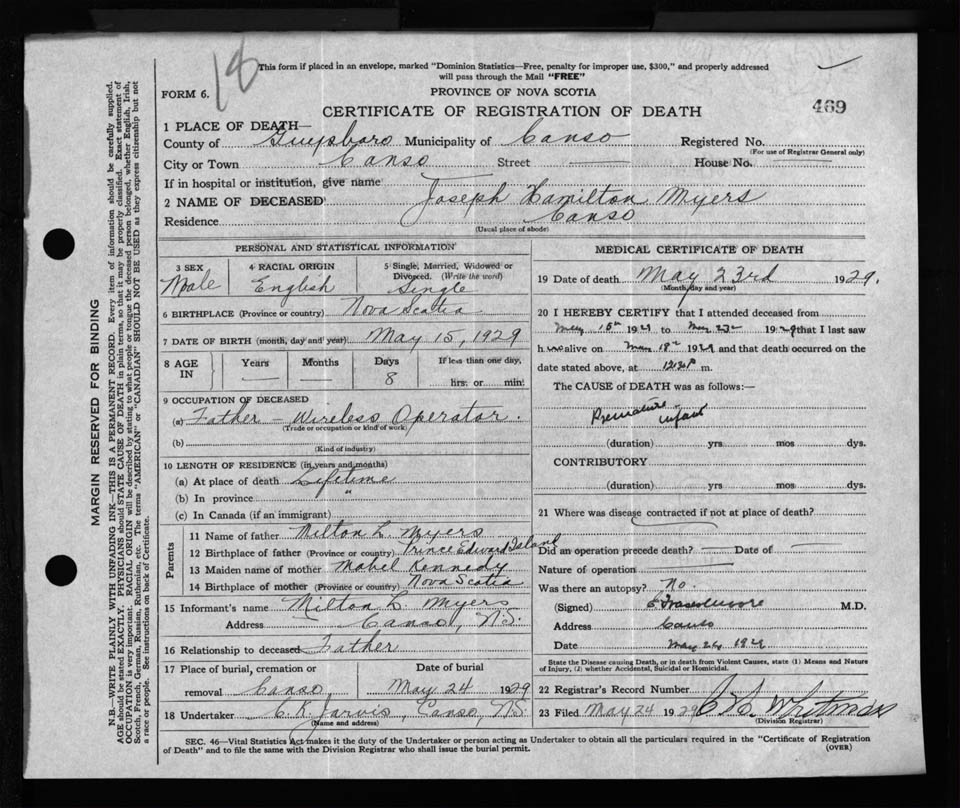 18
This form if placed in an envelope, marked "Dominion Statistics—Free, penalty for improper use, $300," and properly addressed
will pass through the Mail "FREE"
FORM 6.
PROVINCE OF NOVA SCOTIA
469
CERTIFICATE OF REGISTRATION OF DEATH
1 PLACE OF DEATH—
County of Guysboro Municipality of Canso Registered No.
(For use of Registrar General only)
City or Town Canso Street House No.
If in hospital or institution, give name
2 NAME OF DECEASED Joseph Hamilton Myers
Residence Canso
(Usual place of abode)
PERSONAL AND STATISTICAL INFORMATION
3 SEX 4 RACIAL ORIGIN 5 Single, Married, Widowed or
Divorced. (Write the word)
Male English Single
6 BIRTHPLACE (Province or country) Nova Scotia
7 DATE OF BIRTH (month, day and year) May 15, 1929
8 AGE IN Years Months Days If less than one day,
— — 8 hrs. or min.
9 OCCUPATION OF DECEASED
(a) Father – Wireless Operator.
(Trade or occupation or kind of work)
(b)
(Kind of industry)
10 LENGTH OF RESIDENCE (in years and months)
(a) At place of death Lifetime
(b) In province "
(c) In Canada (if an immigrant)
Parents
11 Name of father Milton L. Myers
12 Birthplace of father (Province or country) Prince Edward Island
13 Maiden name of mother Mabel Kennedy
14 Birthplace of mother (Province or country) Nova Scotia
15 Informant's name Milton L. Myers
Address Canso, N.S.
16 Relationship to deceased Father
17 Place of burial, cremation or Date of burial
removal Canso, May 24 1929
18 Undertaker C. K. Jarvis, Canso, N.S.
(Name and address)
MEDICAL CERTIFICATE OF DEATH
19 Date of death May 23rd 1929.
(Month, day and year)
20 I HEREBY CERTIFY that I attended deceased from
May 15th 1929 to May 23rd 1929 that I last saw
h im alive on May 18th 1929 and that death occurred on the
date stated above, at 12:30 P m.
The CAUSE of DEATH was as follows:—
Premature infant
(duration) yrs mos dys.
CONTRIBUTORY
(duration) yrs. mos. dys.
21 Where was disease contracted if not at place of death?
Did an operation precede death? — Date of —
Nature of operation
Was there an autopsy? No.
(Signed) M.D.
Address Canso
Date May 24 1929
State the Disease causing Death, or in death from Violent Causes, state (1) Means and Nature
of Injury, (2) whether Accidental, Suicidal or Homicidal.
22 Registrar's Record Number
23 Filed May 24 1929 Whitman
(Division Registrar)
SEC. 46—Vital Statistics Act makes it the duty of the Undertaker or person acting as Undertaker to obtain all the particulars required in the "Certificate of Registration
of Death" and to file the same with the Division Registrar who shall issue the burial permit.
(OVER)
MARGIN RESERVED FOR BINDING
N.B.—WRITE PLAINLY WITH UNFADING INK—THIS IS A PERMANENT RECORD. Every item of information should be carefully supplied.
AGE should be stated EXACTLY. PHYSICIANS should STATE CAUSE OF DEATH in plain terms, so that it may be properly classified. Exact statement of
OCCUPATION is very important. RACIAL ORIGIN will be described by stating to what people or tongue the deceased person belonged, whether English, Irish,
Scotch, French, German, Russian, Ruthenian, etc. The terms "AMERICAN" or "CANADIAN" SHOULD NOT BE USED as they express citizenship but not
a race or people. See instructions on back of Certificate.